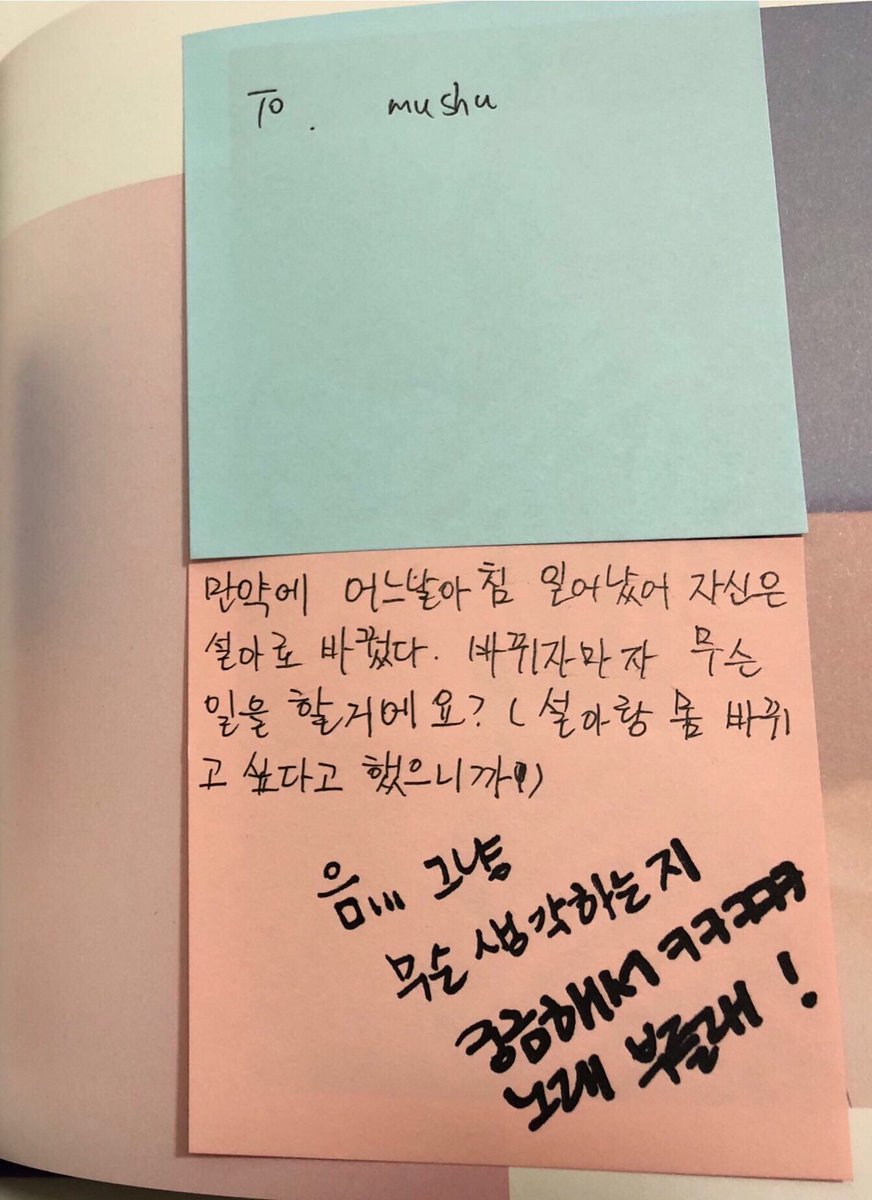 To. mushu
만약에 어느날아침 일어났어 자신은
설아로 바꿨다. 바뀌자만자 무슨
일을 할거에요? (설아랑 몸 바뀌
고 싶다고 했으니까!)
음... 그냥
무슨 생각하는지
궁금해서 ㅋㅋㅋㅋㅋ
노래 부를래!